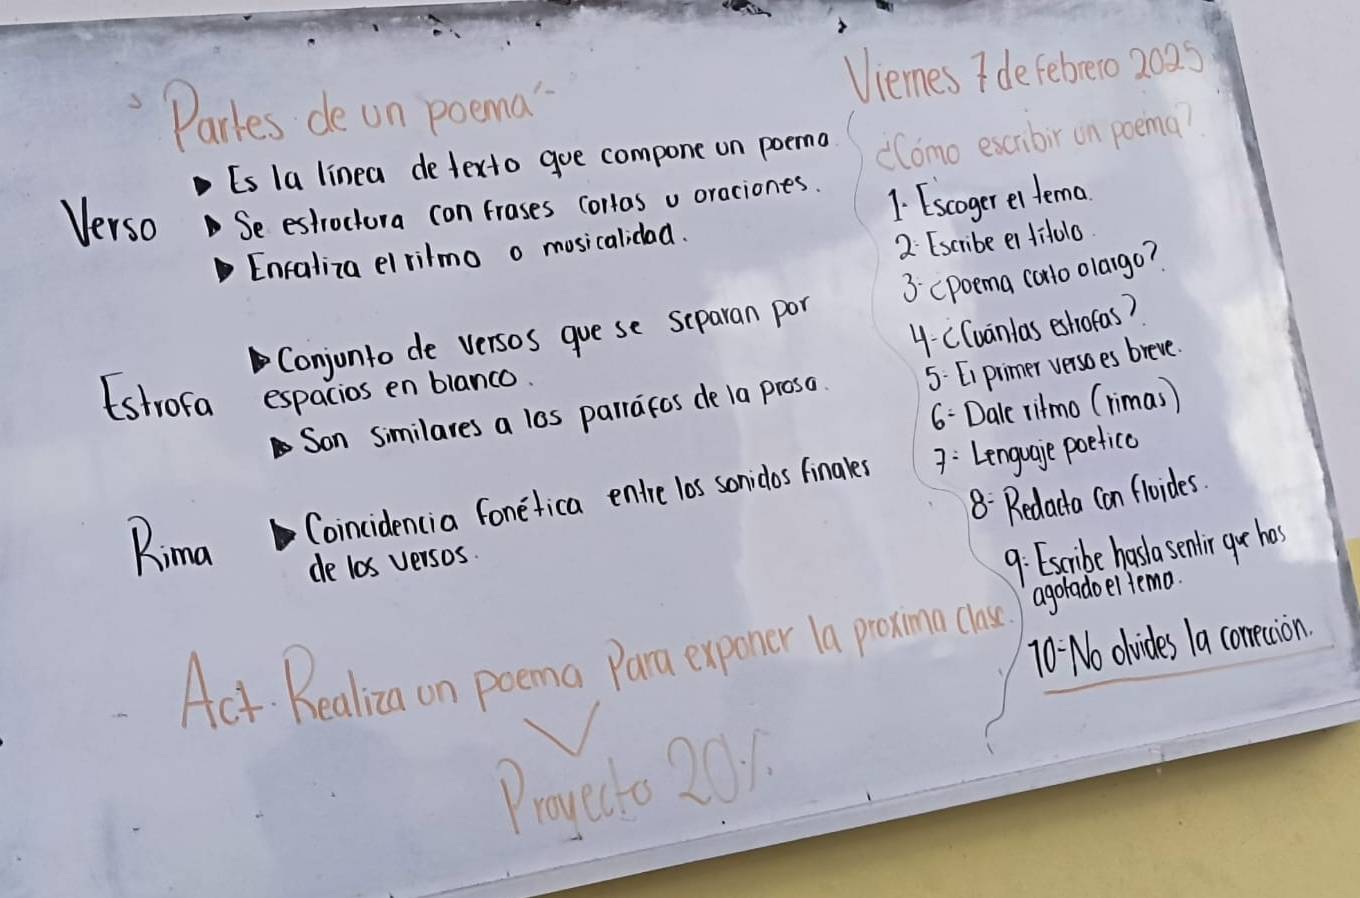 "Partes de un poema"
Verso
▶ Es la línea de texto que compone un poema
▶ Se estructura con frases cortas u oraciones.
▶ Enfatiza el ritmo o musicalidad.
Estrofa
▶ Conjunto de versos que se separan por
espacios en blanco.
▶ Son similares a los parráfos de la prosa.
Rima
▶ Coincidencia fonética entre los sonidos finales
de los versos.
Act. Realiza un poema Para exponer la proxima clase.
Proyecto 20%
Viernes 7 de febrero 2025
¿Cómo escribir un poema?
1- Escoger el tema.
2- Escribe el título.
3- ¿Poema corto o largo?
4- ¿Cuántas estrofas?
5- El primer verso es breve.
6- Dale ritmo (rimas)
7- Lenguaje poetico
8- Redacta con fluides.
9- Escribe hasta sentir que has
agotado el tema.
10- No olvides la corrección.